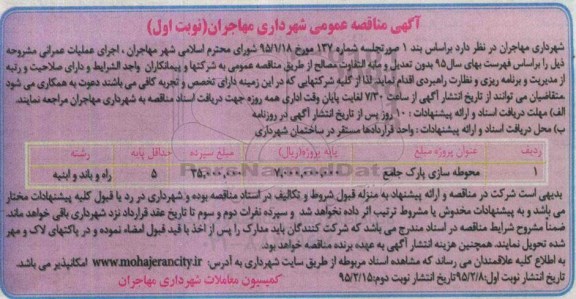 آگهی مناقصه عمومی شهرداری مهاجران(نوبت اول)
شهرداری مهاجران در نظر دارد براساس بند ۱ صورتجلسه شماره ۱۳۷ مورخ ۹۵/۱/۱۸ شورای محترم اسلامی شهر مهاجران ، اجرای عملیات عمرانی مشروحه
ذیل را براساس فهرست بهای سال۹۵ بدون تعدیل و مابه التفاوت مصالح از طریق مناقصه عمومی به شرکتها و پیمانکاران واجد الشرایط و دارای صلاحیت و رتبه
از مدیریت و برنامه ریزی و نظارت راهبردی اقدام نماید. لذا از کلیه شرکتهایی که در این زمینه دارای تخصص و تجربه کافی می باشند دعوت به همکاری می شود
متقاضیان می توانند از تاریخ انتشار آگهی از ساعت ۷/۳۰ لغایت پایان وقت اداری همه روزه جهت دریافت اسناد مناقصه به شهرداری مهاجران مراجعه نمایند.
الف) مهلت دریافت اسناد و ارائه پیشنهادات : ۱۰ روز پس از تاریخ انتشار آگهی در روزنامه
ب) محل دریافت اسناد و ارائه پیشنهادات : واحد قراردادها مستقر در ساختمان شهرداری
ردیف عنوان پروژه مبلغ پایه پروژه(ریال) مبلغ سپرده حداقل پایه رشته
۱ محوطه سازی پارک جامع ۵ راه و باند و ابنیه
بدیهی است شرکت در مناقصه و ارائه پیشنهاد به منزله قبول شروط و تکالیف در اسناد مناقصه بوده و شهرداری در رد یا قبول کلیه پیشنهادات مختار
می باشد و به پیشنهادات مخدوش یا مشروط ترتیب اثر داده نخواهد شد و سپرده نفرات دوم و سوم تا تاریخ عقد قرارداد نزد شهرداری باقی خواهد ماند.
ضمناً مشروح شرایط مناقصه در اسناد مندرج می باشد که شرکت کنندگان باید مدارک را پس از اخذ با قید قبول امضاء نموده و در پاکتهای لاک و مهر
شده تحویل نمایند. همچنین هزینه انتشار آگهی به عهده برنده مناقصه خواهد بود.
به اطلاع کلیه علاقمندان می رساند که مشاهده اسناد مربوطه از طریق سایت شهرداری به آدرس: www.mohajerancity.ir امکانپذیر می باشد.
تاریخ انتشار نوبت اول:۹۵/۲/۸تاریخ انتشار نوبت دوم:۹۵/۲/۱۵ کمیسیون معاملات شهرداری مهاجران